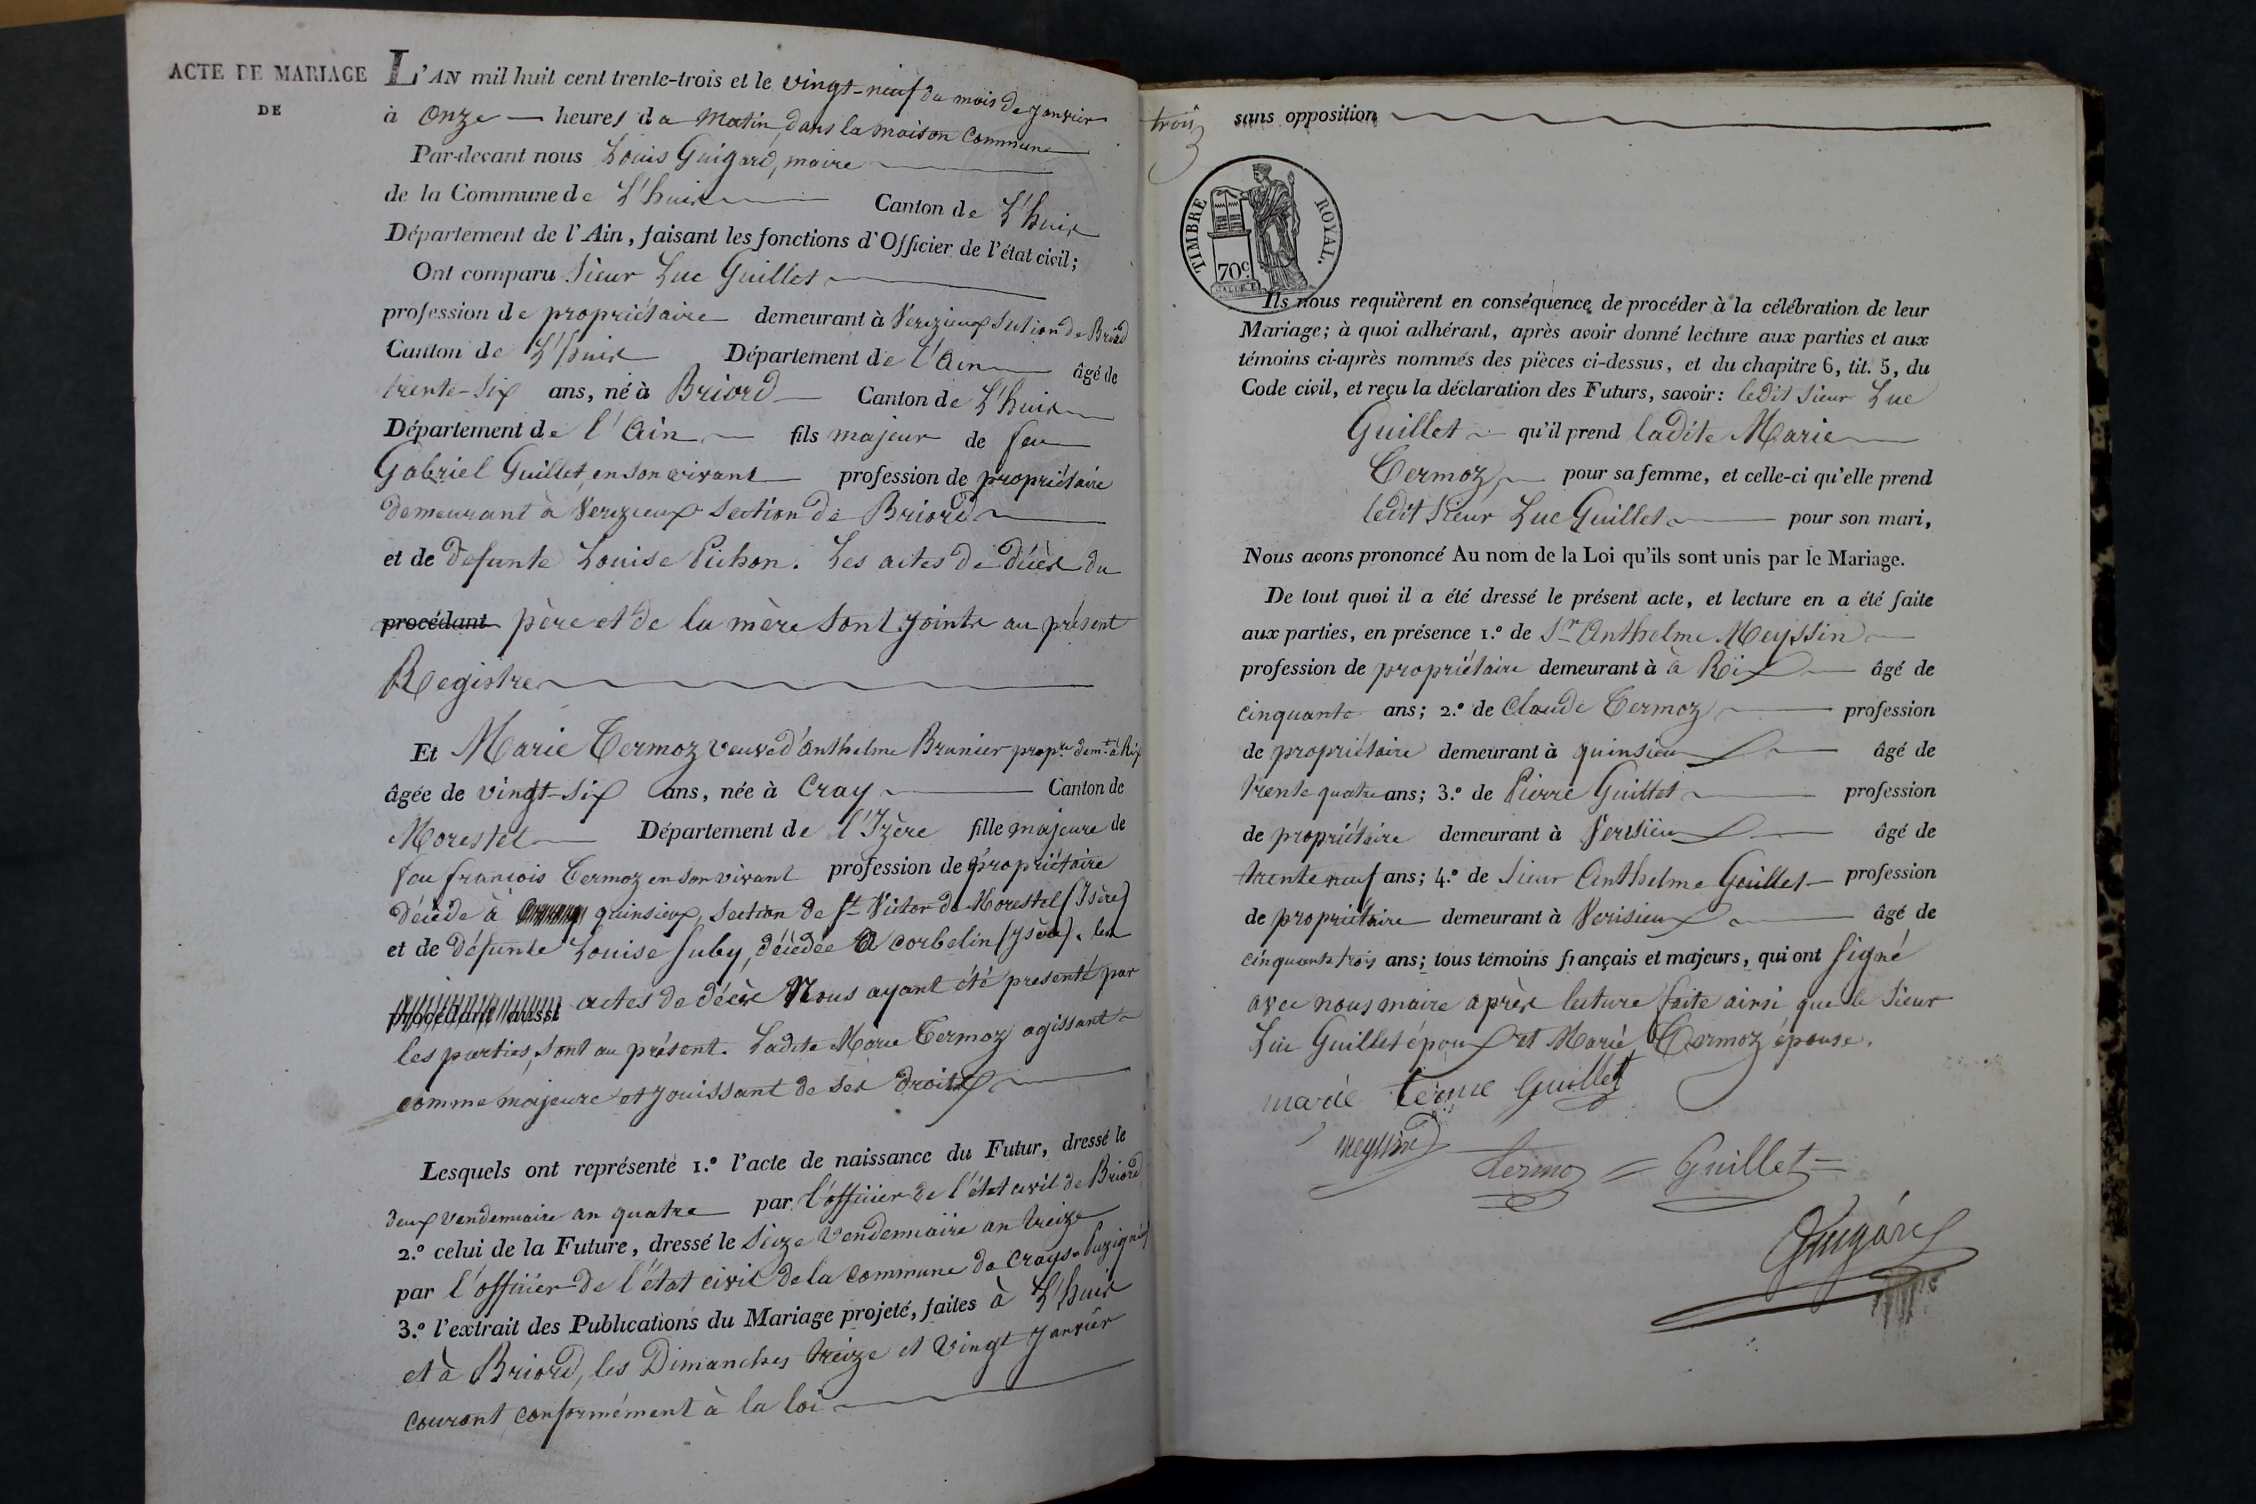 ACTE DE MARIAGE
DE
L'AN mil huit cent trente-trois et le vingt-neuf du mois de Janvier
à Onze heures du Matin, dans la maison Commune
Par-devant nous Louis Guigard, maire
de la Commune de L'huis Canton de L'huis
Département de l'Ain, faisant les fonctions d'Officier de l'état civil;
Ont comparu Sieur Luc Guillet
profession de propriétaire demeurant à Verizieux section de Briord
Canton de L'huis Département de l'Ain âgé de
trente-six ans, né à Briord Canton de L'huis
Département de l'Ain fils majeur de feu
Gabriel Guillet, en son vivant profession de propriétaire
demeurant à Verizieux section de Briord
et de défunte Louise Pichon. Les actes de décès du
procédant père et de la mère sont joints au présent
Registre
Et Marie Termoz veuve d'Anthelme Brunier propre demt à Rix
âgée de vingt-six ans, née à Cray Canton de
Morestel Département de l'Izère fille majeure de
feu francois Termoz en son vivant profession de propriétaire
décédé à quinsieux, section de St Victor de Morestel (Isère)
et de défunte Louise Juby, décédée à Corbelin (Isère). les
procédant aussi actes de décès Nous ayant été presenté par
les parties, sont au présent. Ladite Marie Termoz agissant
comme majeure et jouissant de ses droits
Lesquels ont représenté 1.º l'acte de naissance du Futur, dressé le
deux vendemiaire an quatre par l'officier de l'état civil de Briord
2.º celui de la Future, dressé le Seize Vendemiaire an treize
par l'officier de l'état civil de la commune de Crays-Puzignieu
3.º l'extrait des Publications du Mariage projeté, faites à L'huis
et à Briord, les Dimanches treize et vingt Janvier
courant conformément à la loi
trois
3
sans opposition
TIMBRE ROYAL.
70c.
Ils nous requièrent en conséquence de procéder à la célébration de leur
Mariage; à quoi adhérant, après avoir donné lecture aux parties et aux
témoins ci-après nommés des pièces ci-dessus, et du chapitre 6, tit. 5, du
Code civil, et reçu la déclaration des Futurs, savoir: ledit Sieur Luc
Guillet qu'il prend ladite Marie
Termoz, pour sa femme, et celle-ci qu'elle prend
ledit Sieur Luc Guillet pour son mari,
Nous avons prononcé Au nom de la Loi qu'ils sont unis par le Mariage.
De tout quoi il a été dressé le présent acte, et lecture en a été faite
aux parties, en présence 1.º de Sr Anthelme Meyssin
profession de propriétaire demeurant à à Rix âgé de
cinquante ans; 2.º de Claude Termoz profession
de propriétaire demeurant à quinsieu âgé de
trente quatre ans; 3.º de Pierre Guillet profession
de propriétaire demeurant à Verisieux âgé de
trente neuf ans; 4.º de Sieur Anthelme Guillet profession
de propriétaire demeurant à Verisieux âgé de
cinquante trois ans; tous témoins français et majeurs, qui ont Signé
avec nous maire après lecture faite ainsi que le Sieur
Luc Guillet époux et Marie Termoz épouse.
marie terme Guillet
meyssind
termoz Guillet
Guigard